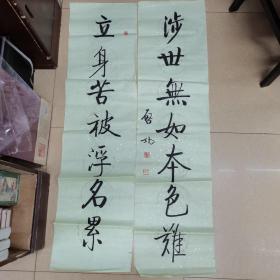 涉世無如本色難
啓功
立身苦被浮名累